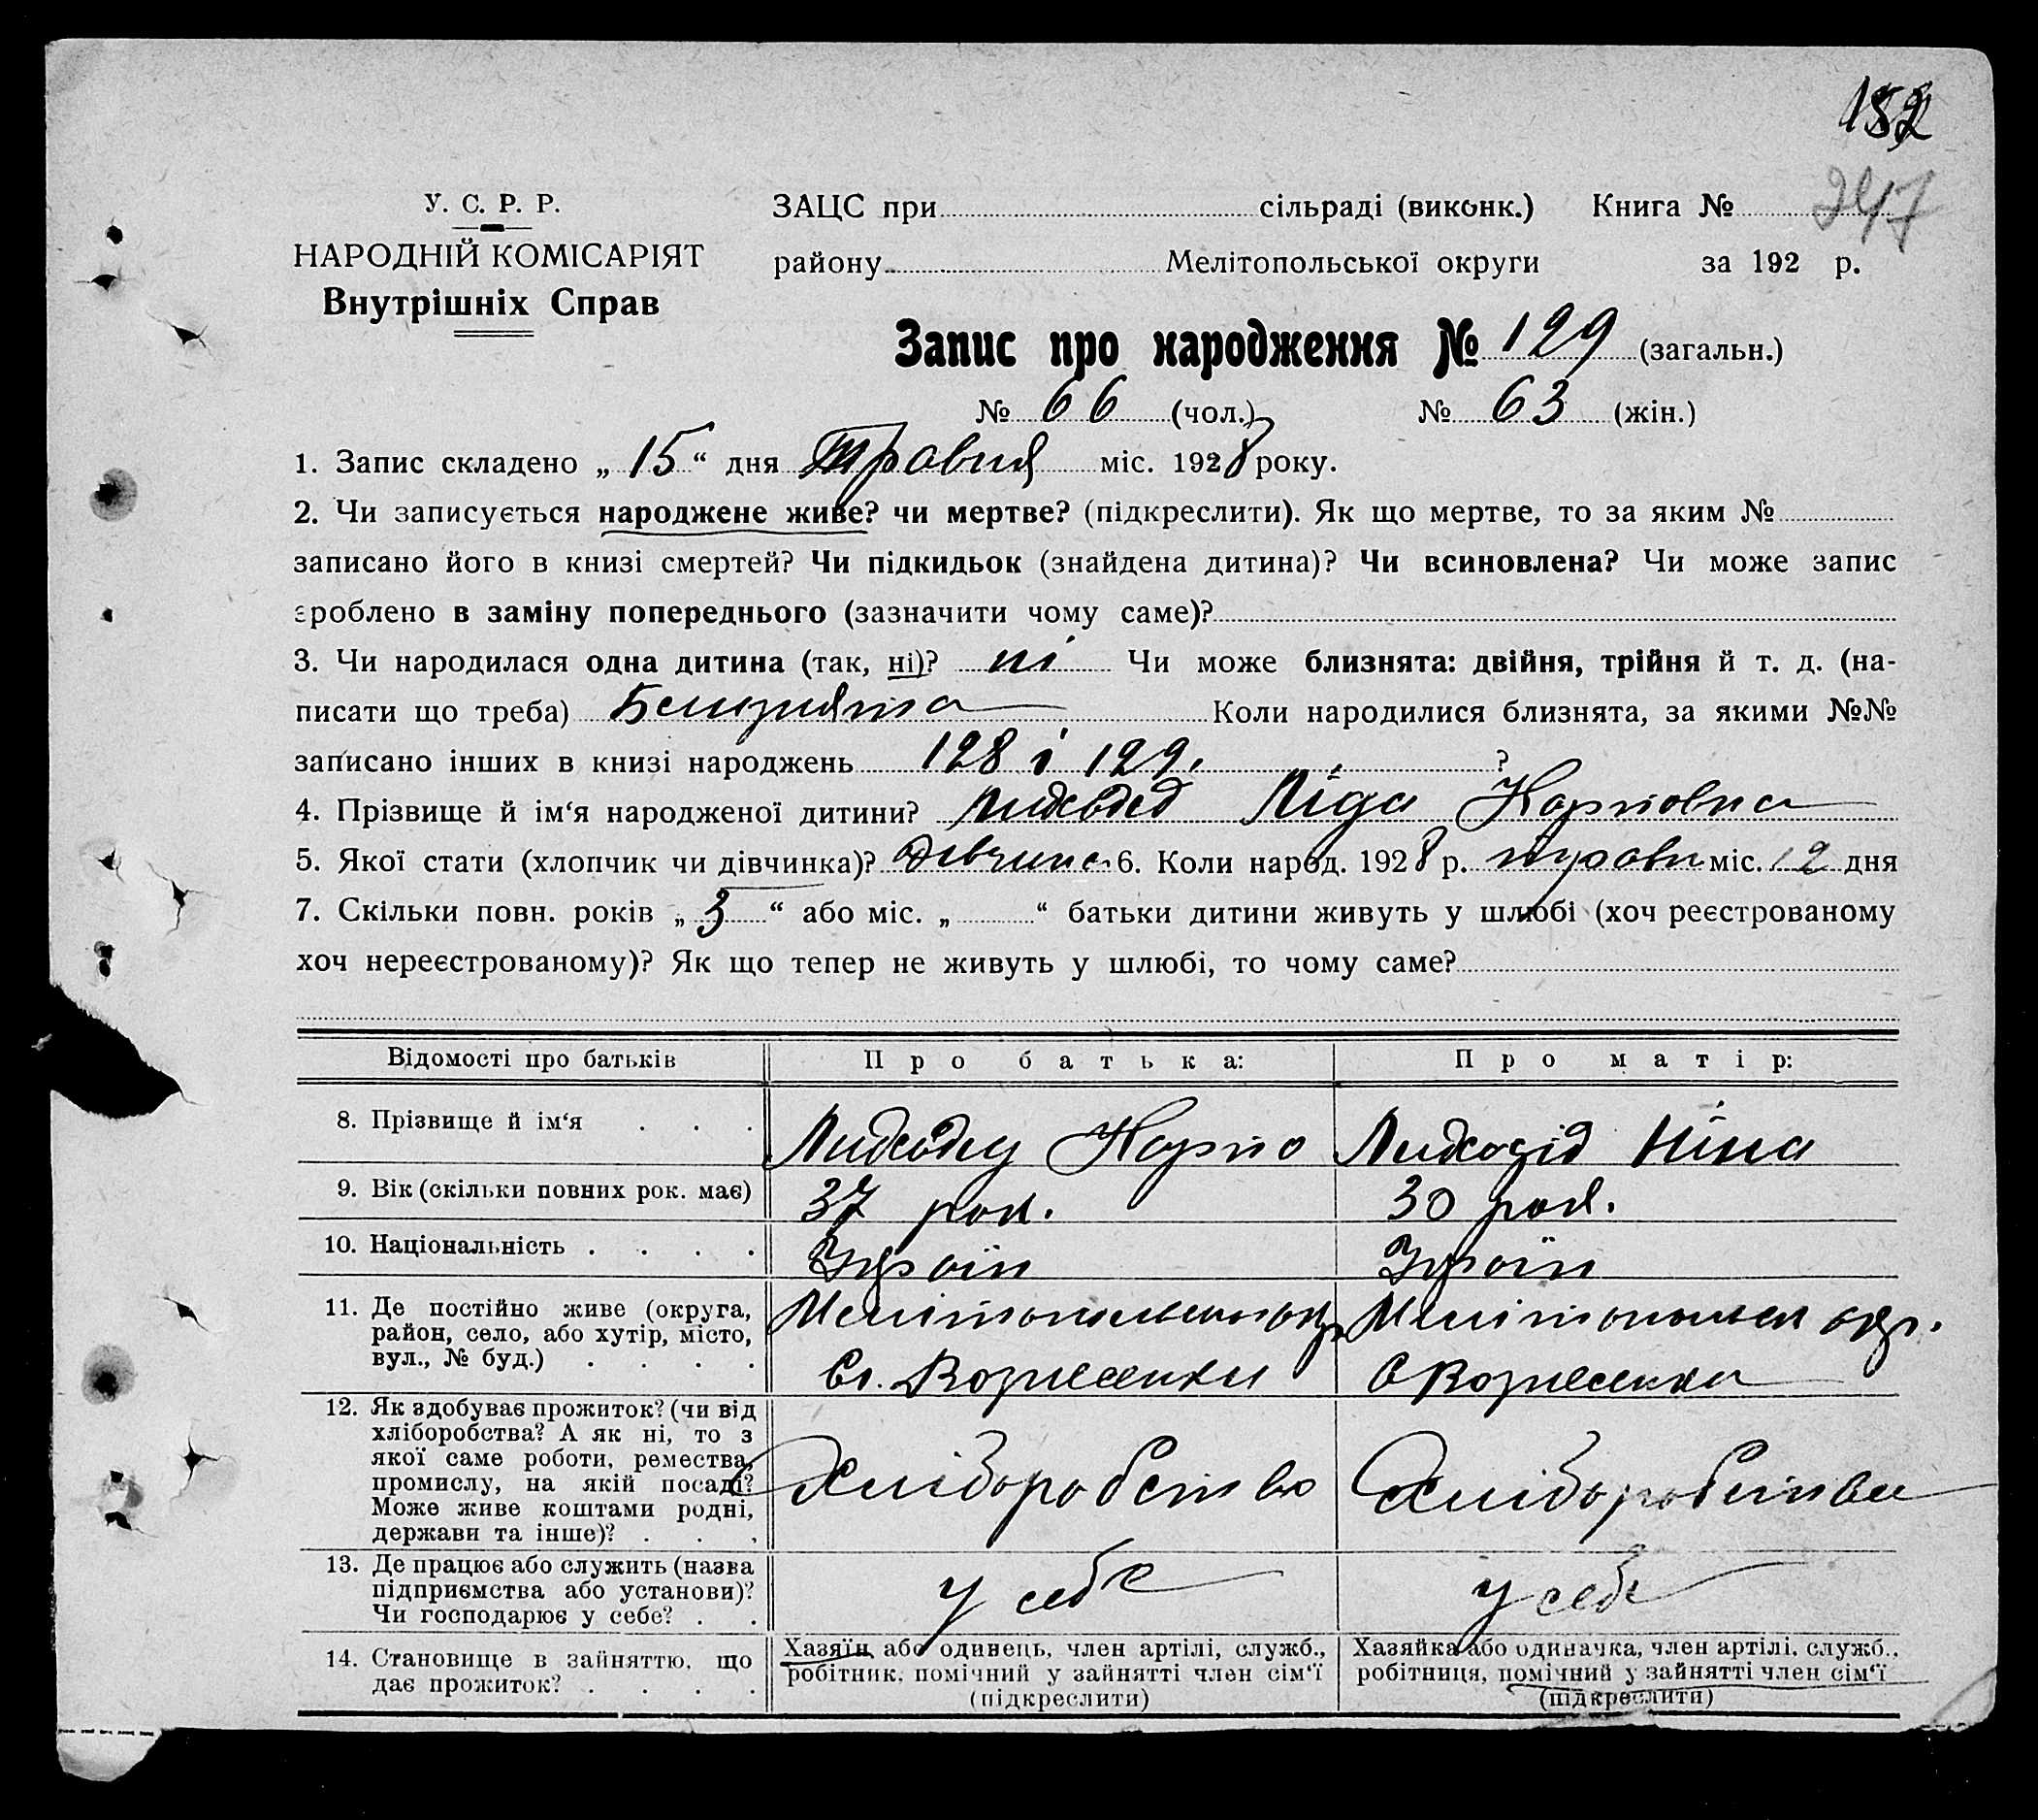 247
У. С. Р. Р.
НАРОДНІЙ КОМІСАРІЯТ
Внутрішніх Справ
ЗАЦС при сільраді (виконк.) Книга №
району Мелітопольської округи за 192 р.
Запис про народження № 129 (загальн.)
№ 66 (чол.) № 63 (жін.)
1. Запис складено „ 15 “ дня Травня міс. 1928 року.
2. Чи записується народжене живе? чи мертве? (підкреслити). Як що мертве, то за яким №
записано його в книзі смертей? Чи підкидьок (знайдена дитина)? Чи всиновлена? Чи може запис
зроблено в заміну попереднього (зазначити чому саме)?
3. Чи народилася одна дитина (так, ні)? ні Чи може близнята: двійня, трійня й т. д. (на-
писати що треба) Близнята Коли народилися близнята, за якими №№
записано інших в книзі народжень 128 і 129. ?
4. Прізвище й ім‘я народженої дитини? Ліда Карповна
5. Якої стати (хлопчик чи дівчинка)? Дівчина 6. Коли народ. 1928 р. травн міс. 12 дня
7. Скільки повн. років „ 5 “ або міс. „ “ батьки дитини живуть у шлюбі (хоч реєстрованому
хоч нереєстрованому)? Як що тепер не живуть у шлюбі, то чому саме?
Відомості про батьків Про батька: Про матір:
8. Прізвище й ім‘я . . . Карпо Лиходід Ніна
9. Вік (скільки повних рок. має) 37 рок. 30 рок.
10. Національність . . . . Україн Україн
11. Де постійно живе (округа,
район, село, або хутір, місто,
вул., № буд.) . . . .
Мелітопольськ окр Мелітопольськ окр.
Вознесенка С Вознесенка
12. Як здобуває прожиток? (чи від
хліборобства? А як ні, то з
якої саме роботи, ремества,
промислу, на якій посаді?
Може живе коштами родні,
держави та інше)? . . .
Хліборобство Хліборобства
13. Де працює або служить (назва
підприємства або установи)?
Чи господарює у себе? . .
у себе у себе
14. Становище в зайняттю, що
дає прожиток? . . . .
Хазяїн, або одинець, член артілі, служб.,
робітник, помічний у зайнятті член сім‘ї
(підкреслити)
Хазяйка або одиначка, член артілі, служб.,
робітниця, помічний у зайнятті член сім‘ї
(підкреслити)